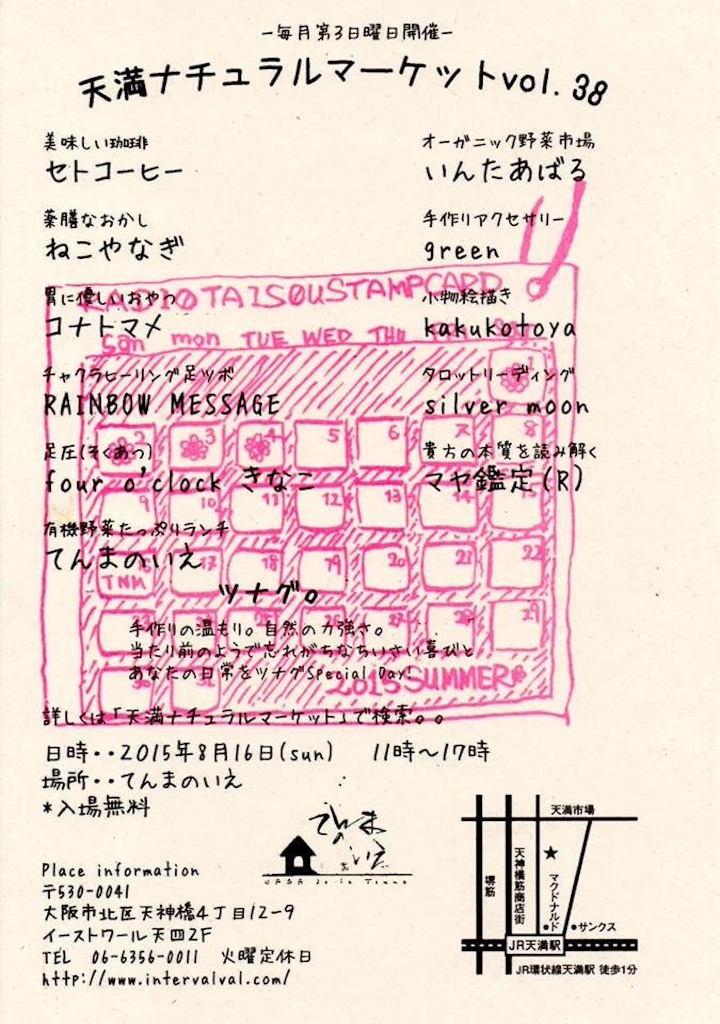 −毎月第3日曜日開催−
天満ナチュラルマーケットvol.38
美味しい珈琲
セトコーヒー
薬膳なおかし
ねこやなぎ
胃に優しいおやつ
コナトマメ
チャクラヒーリング足ツボ
RAINBOW MESSAGE
足圧(そくあつ)
four o'clock きなこ
有機野菜たっぷりランチ
てんまのいえ
オーガニック野菜市場
いんたあばる
手作りアクセサリー
green
小物絵描き
kakukotoya
タロットリーディング
silver moon
貴方の本質を読み解く
マヤ鑑定(R)
RADIOTAISOUSTAMPCARD
San mon TUE WED THU
1
2 3 4 5 6 7 8
9 10 11 12 13 14 15
16 17 18 19 20 21 22
TNM
28 29
30 31
2015SUMMER
ツナグ。
手作りの温もり。自然の力強さ。
当たり前のようで忘れがちなちいさい喜びと
あなたの日常をツナグSpecial Day!
詳しくは「天満ナチュラルマーケット」で検索。。
日時・・2015年8月16日(sun) 11時〜17時
場所・・てんまのいえ
*入場無料
てんまのいえ
Place information
〒530-0041
大阪市北区天神橋4丁目12-9
イーストワール天四2F
TEL 06-6356-0011 火曜定休日
http://www.intervalval.com/
天満市場
堺筋
天神橋筋商店街
★
マクドナルド
サンクス
JR天満駅
JR環状線天満駅 徒歩1分